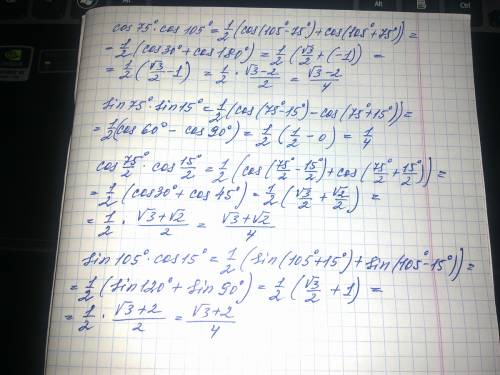 cos 75° · cos 105° = 1/2 (cos(105° - 75°) + cos(105° + 75°)) =
- 1/2 (cos 30° + cos 180°) = 1/2 (√3/2 + (-1)) =
= 1/2 (√3/2 - 1) = 1/2 · √3-2/2 = √3-2/4
sin 75° · sin 15° = 1/2 (cos(75° - 15°) - cos(75° + 15°)) =
= 1/2 (cos 60° - cos 90°) = 1/2 (1/2 - 0) = 1/4
cos 75°/2 · cos 15°/2 = 1/2 (cos(75°/2 - 15°/2) + cos(75°/2 + 15°/2)) =
= 1/2 (cos 30° + cos 45°) = 1/2 (√3/2 + √2/2) =
= 1/2 · √3+√2/2 = √3+√2/4
sin 105° · cos 15° = 1/2 (sin(105° + 15°) + sin(105° - 15°)) =
= 1/2 (sin 120° + sin 90°) = 1/2 (√3/2 + 1) =
= 1/2 · √3+2/2 = √3+2/4